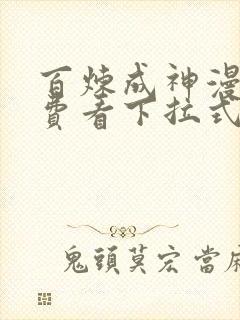 百炼成神漫
费看下拉式
鬼頭莫宏當麻